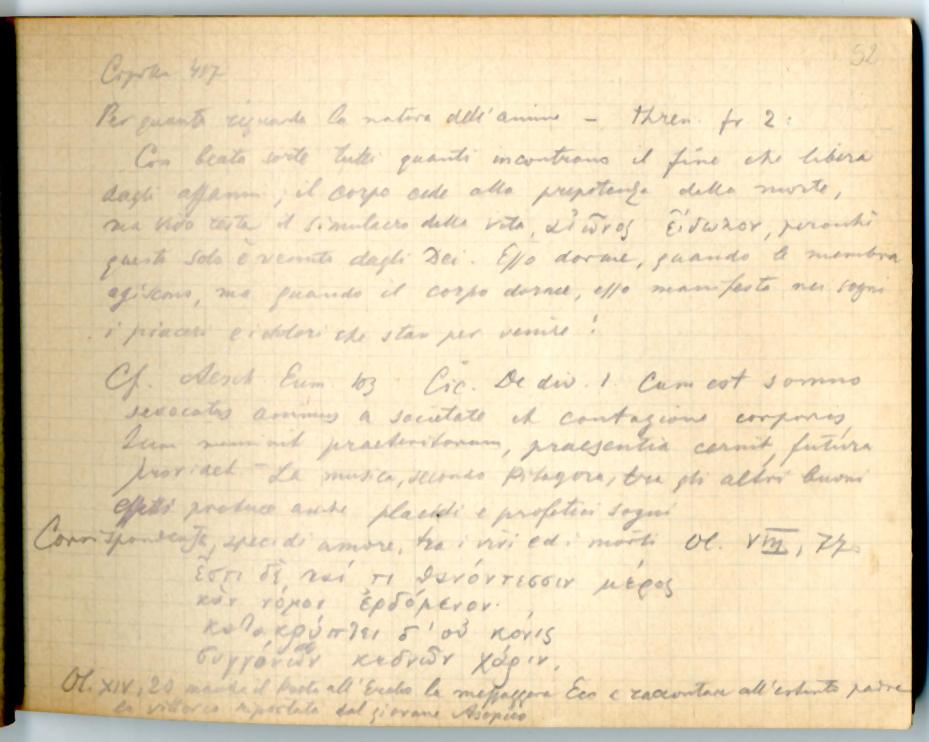 52
Coppola 407
Per quanto riguarda la natura dell'anima – thren. fr 2:
Con beata sorte tutti quanti incontrano il fine che libera
dagli affanni; il corpo cede alla prepotenza della morte,
ma vivo resta il simulacro della vita, αἰῶνος εἴδωλον, perché
questo solo è venuto dagli Dei. Esso dorme, quando le membra
agiscono, ma quando il corpo dorme, esso manifesta nei sogni
i piaceri e i dolori che stan per venire!
Cf. Aesch Eum. 103 Cic. De div. 1. Cum est somno
sevocatus animus a societate et contagione corporis
tum meminit praeteritorum, praesentia cernit, futura
providet – La musica, secondo Pitagora, tra gli altri buoni
effetti produce anche placidi e profetici sogni
Corrispondenza, specie di amore, tra i vivi ed i morti Ol. VIII, 77.
ἔστι δὲ καί τι θανόντεσσιν μέρος
κὰν νόμον ἐρδόμενον·
κατακρύπτει δ' οὐ κόνις
συγγόνων κεδνὰν χάριν.
Ol. XIV, 20 manda il Poeta all'Erebo la messaggera Eco a raccontare all'estinto padre
la vittoria riportata dal giovane Asopico